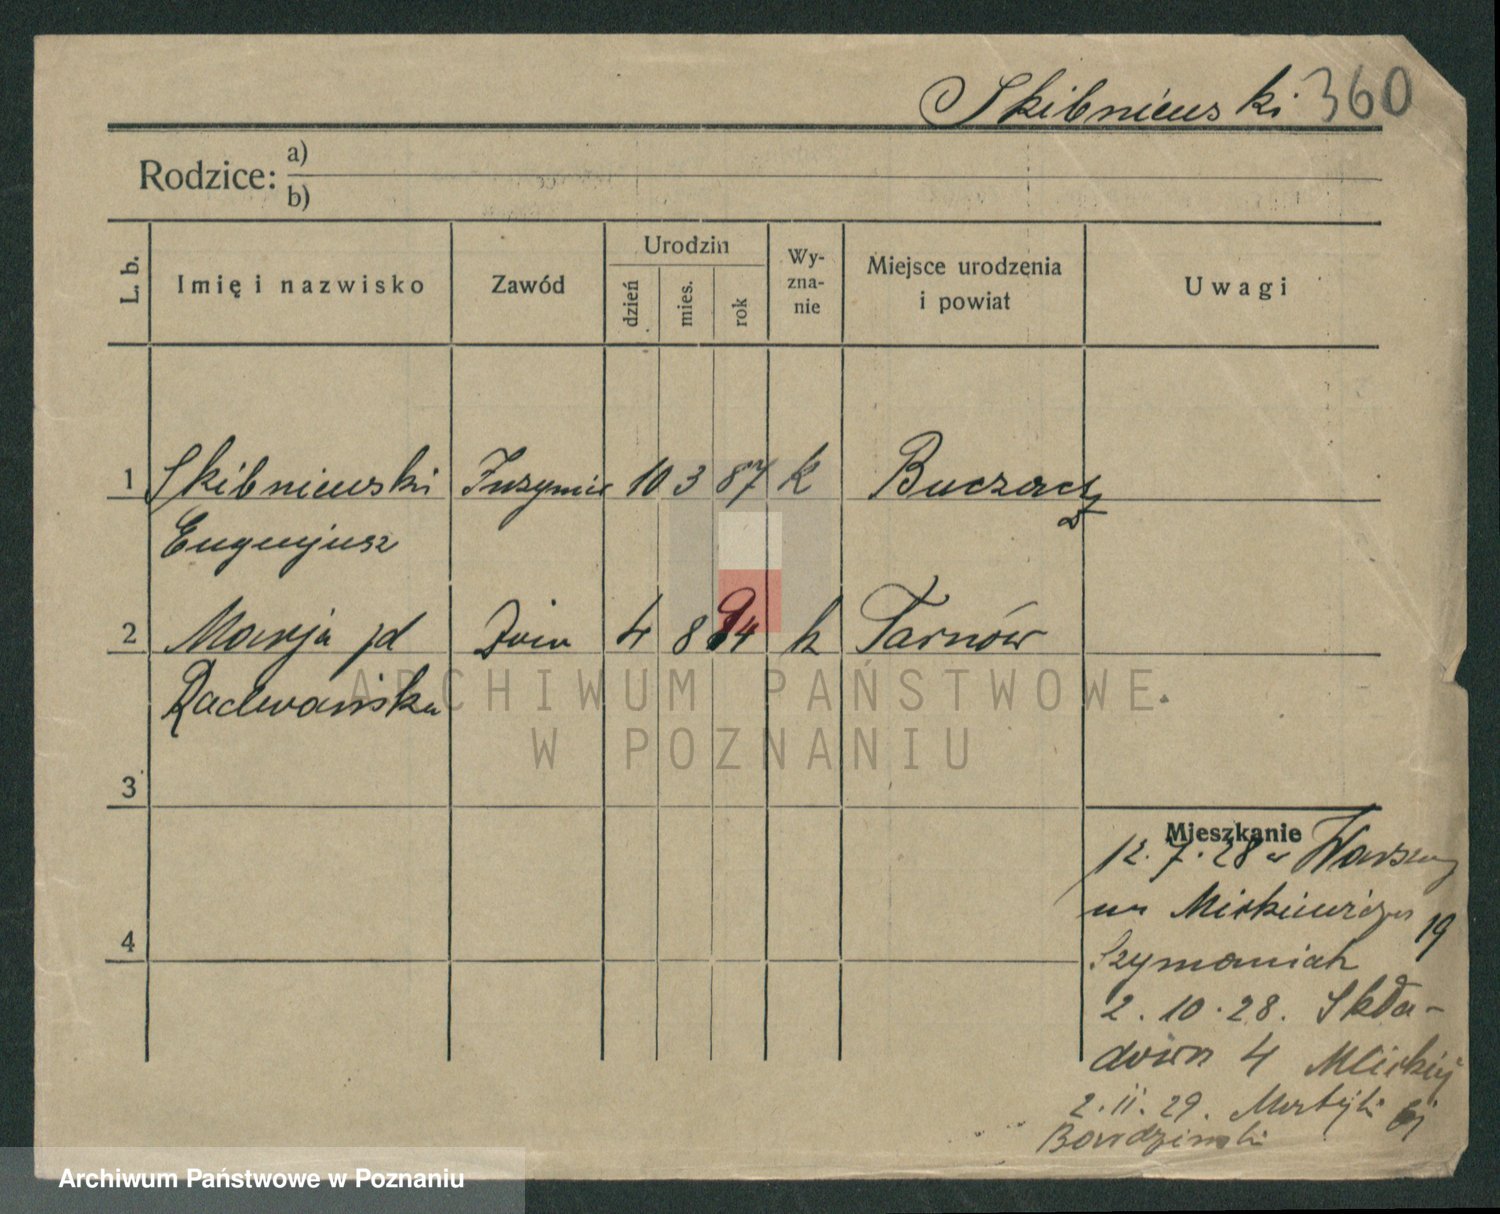 Skibniewski 360
Rodzice: a)
b)
L. b.
Imię i nazwisko
Zawód
Urodzin
dzień
mies.
rok
Wy-
zna-
nie
Miejsce urodzenia
i powiat
Uwagi
1 Skibniewski Inżynier 10 3 87 k Buczacz
Eugenjusz
2 Marja jd 4 8 94 k Tarnów
Radwańska
3
4
Mieszkanie
12. 7. 28 w
Mickiewicza 19
Szymaniak
2. 10. 28. Skła-
dowa 4
2. 11. 29.
ARCHIWUM PAŃSTWOWE
W POZNANIU
Archiwum Państwowe w Poznaniu